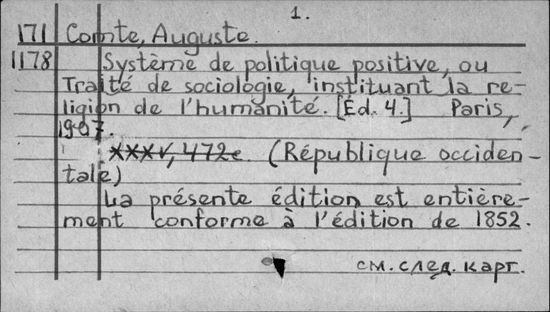 1.
171 Comte, Auguste.
1178 Système de politique positive, ou
Traité de sociologie, instituant la re-
ligion de l'humanité. [Éd. 4.] Paris,
1907.
XXXV, 472c. (République occiden-
tale)
La présente édition est entière-
ment conforme à l'édition de 1852.
см. след. карт.